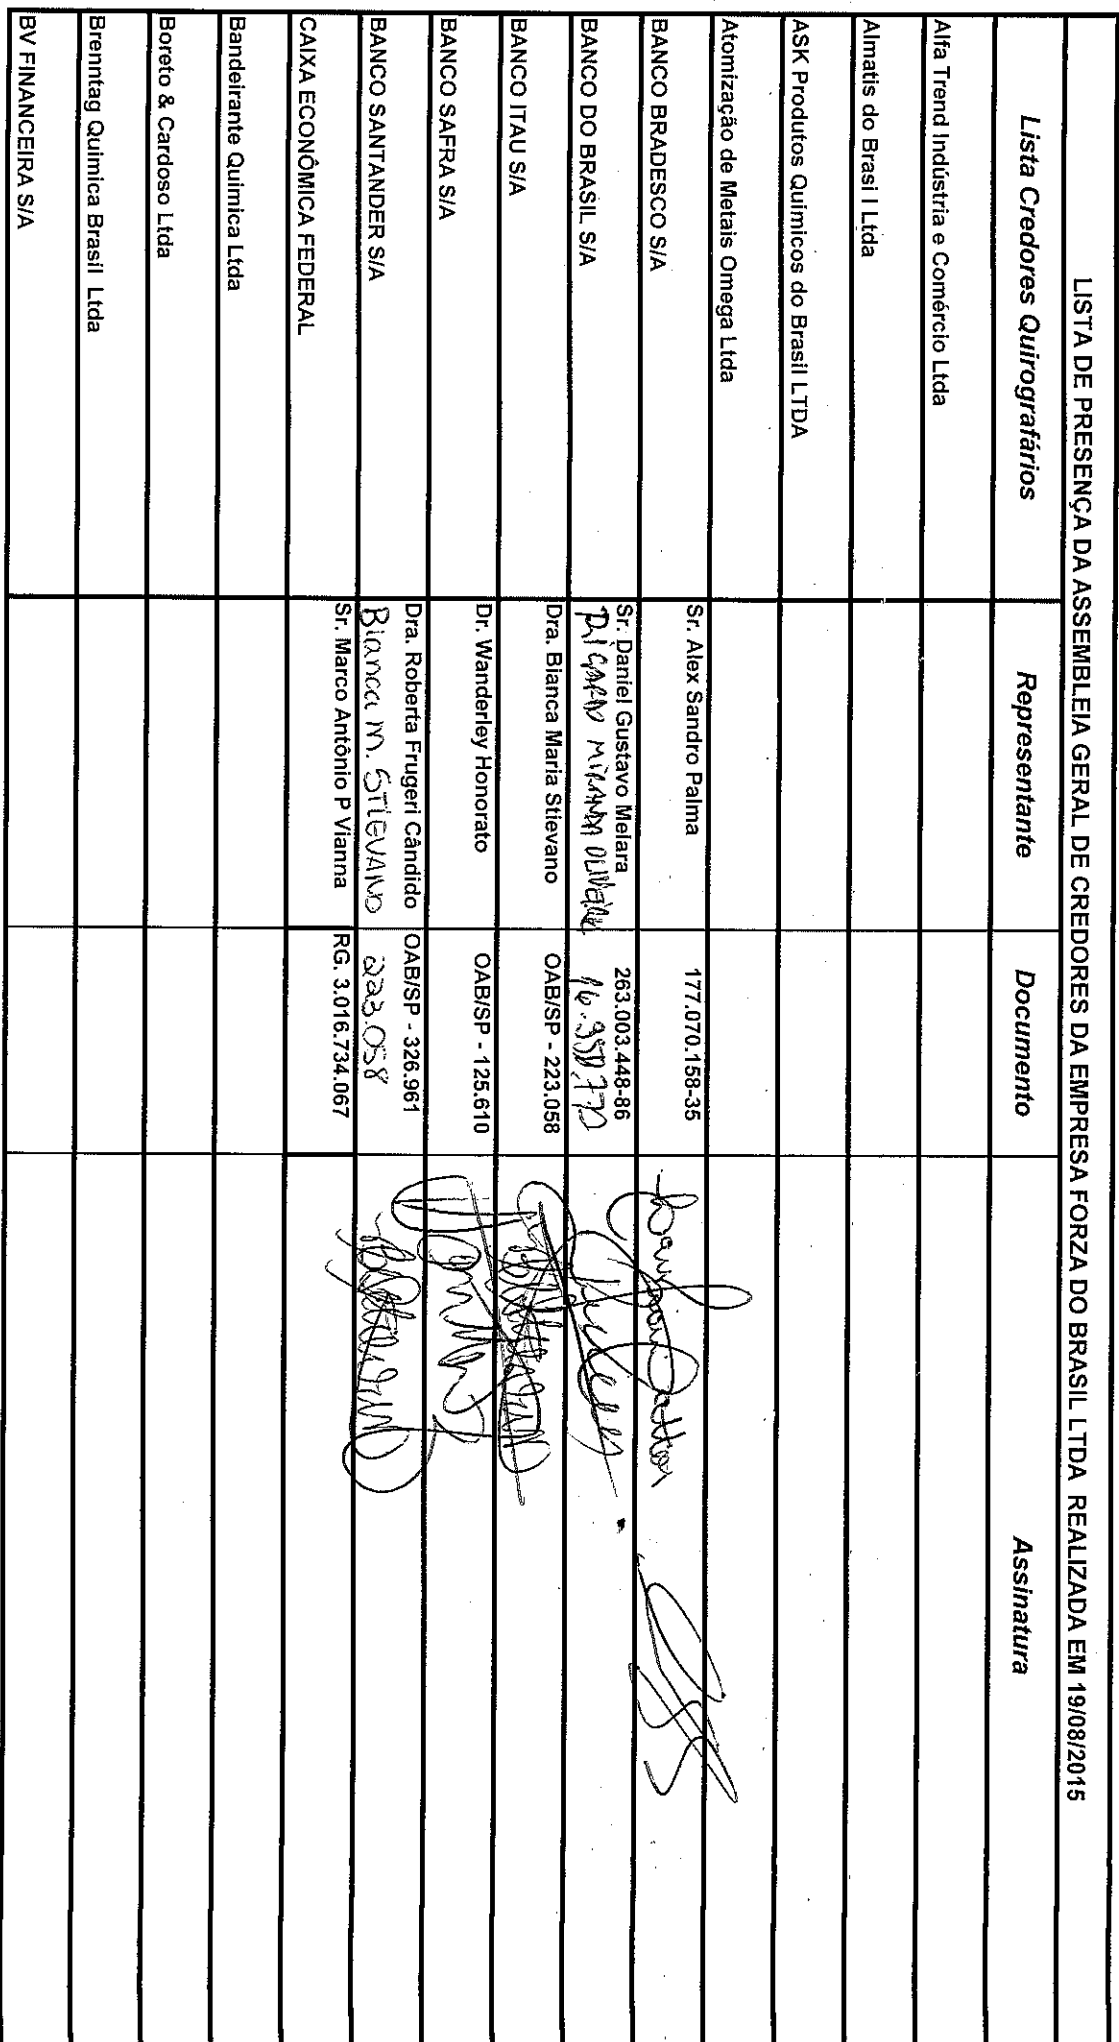 LISTA DE PRESENÇA DA ASSEMBLEIA GERAL DE CREDORES DA EMPRESA FORZA DO BRASIL LTDA REALIZADA EM 19/08/2015
Lista Credores Quirografários Representante Documento Assinatura
Alfa Trend Indústria e Comércio Ltda
Almatis do Brasi l Ltda
ASK Produtos Quimicos do Brasil LTDA
Atomização de Metais Omega Ltda
BANCO BRADESCO S/A Sr. Alex Sandro Palma 177.070.158-35
BANCO DO BRASIL S/A Sr. Daniel Gustavo Meiara 263.003.448-86
RICARDO MIRANDA OLIVEIRA
BANCO ITAU S/A Dra. Bianca Maria Stievano OAB/SP - 223.058
BANCO SAFRA S/A Dr. Wanderley Honorato OAB/SP - 125.610
BANCO SANTANDER S/A Dra. Roberta Frugeri Cândido OAB/SP - 326.961
Bianca M. STIEVANO 223.058
CAIXA ECONÔMICA FEDERAL Sr. Marco Antônio P Vianna RG. 3.016.734.067
Bandeirante Quimica Ltda
Boreto & Cardoso Ltda
Brenntag Quimica Brasil Ltda
BV FINANCEIRA S/A